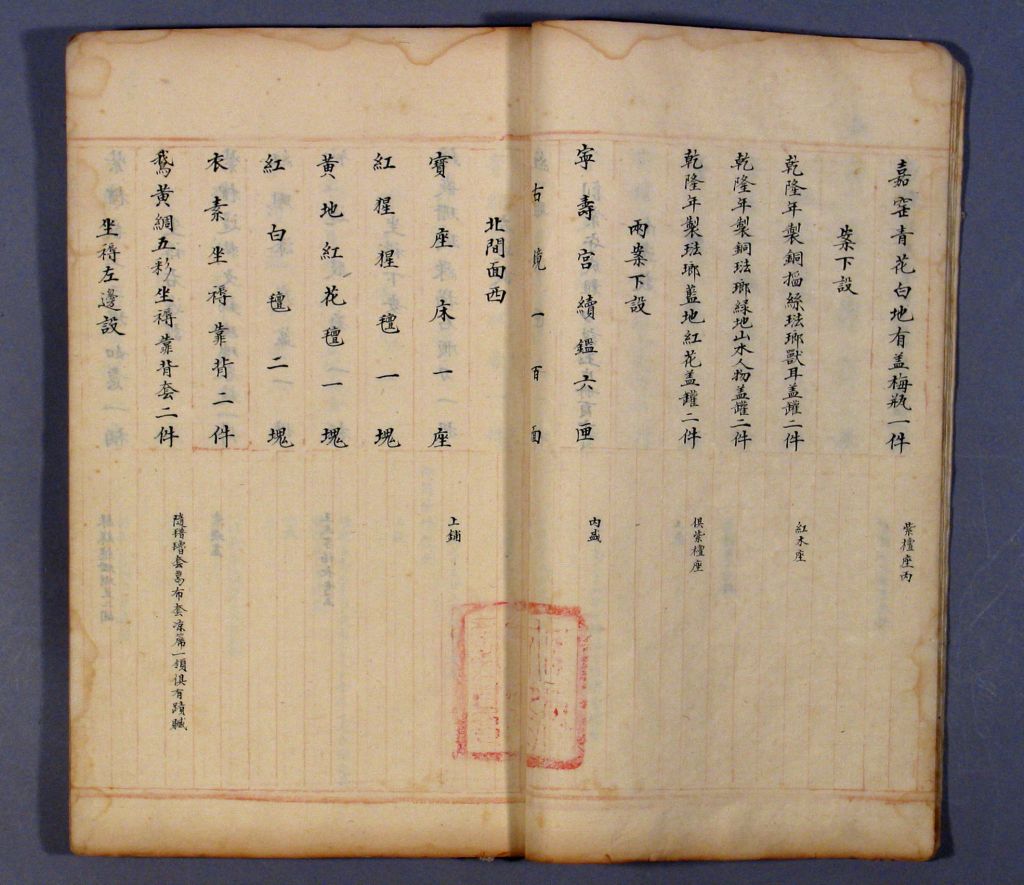 嘉窑青花白地有盖梅瓶一件
紫檀座丙
案下設
乾隆年製銅掐絲琺瑯獸耳盖罐二件
紅木座
乾隆年製銅琺瑯綠地山水人物盖罐二件
乾隆年製琺瑯藍地紅花盖罐二件
俱紫檀座
兩案下設
寧壽宮續鑑六匣
内盛
古鏡一百面
北間面西
寶座床一座
上鋪
紅猩猩氊一塊
黃地紅花氊一塊
紅白氊二塊
衣素坐褥靠背二件
鵞黃綢五彩坐褥靠背套二件
隨 套葛布套凉蓆一領俱有蹟
坐褥左邊設